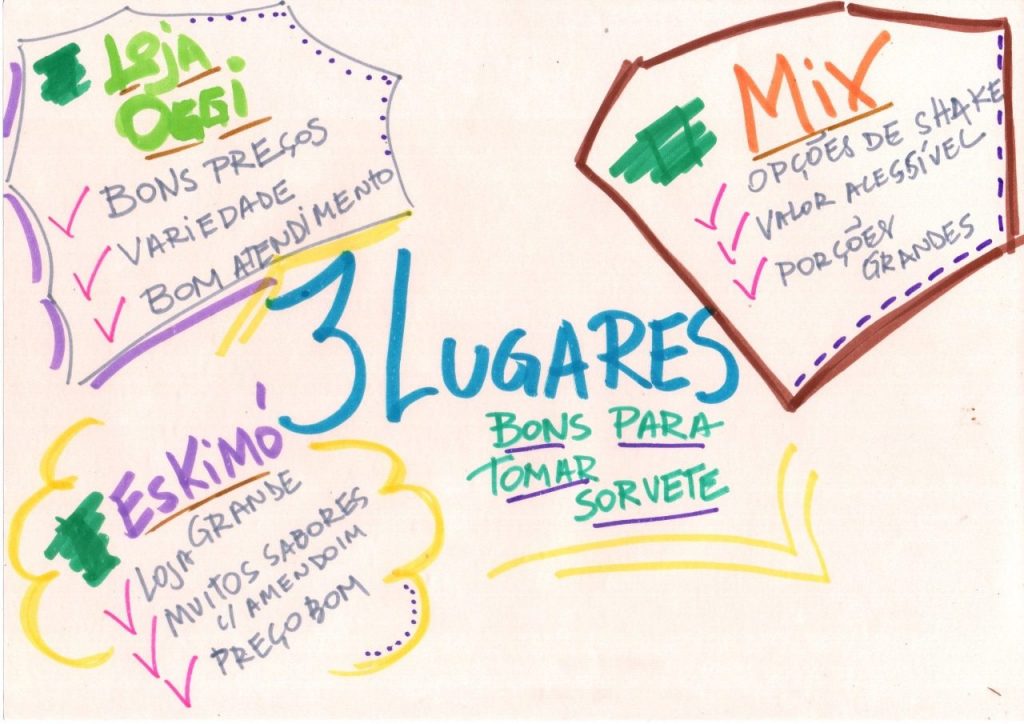 Loja
Oggi
BONS PREÇOS
VARIEDADE
BOM ATENDIMENTO
MiX
OPÇÕES DE SHAKE
VALOR ACESSÍVEL
PORÇÕES
GRANDES
3 LUGARES
BONS PARA
TOMAR
SORVETE
ESKIMÓ
LOJA GRANDE
MUITOS SABORES
C/ AMENDOIM
PREÇO BOM